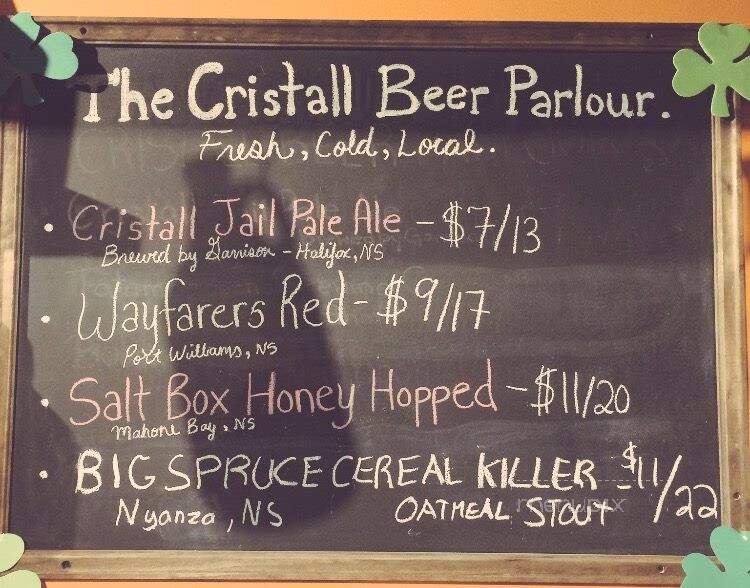 The Cristall Beer Parlour.
Fresh, Cold, Local.
• Cristall Jail Pale Ale - $7/13
Brewed by Garrison - Halifax, NS
• Wayfarers Red - $9/17
Port Williams, NS
• Salt Box Honey Hopped - $11/20
Mahone Bay, NS
• BIG SPRUCE CEREAL KILLER - $11/22
Nyanza, NS OATMEAL STOUT
menupix